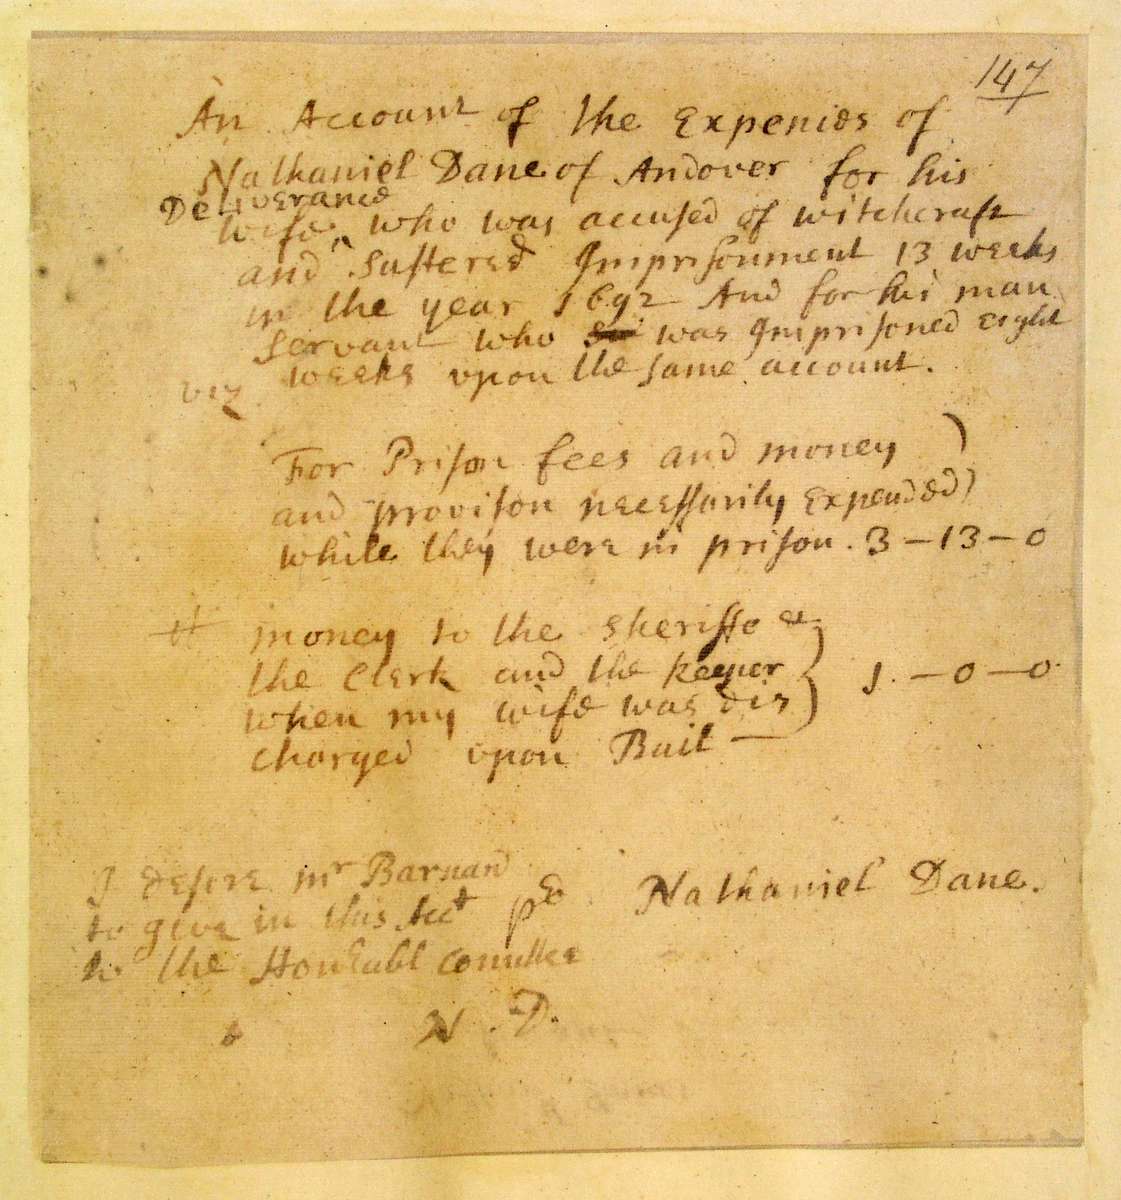 147
An Account of the Expenies of
Nathaniel Dane of Andover for his
Deliverance
wife ^ who was accused of witchcraft
and suffered Imprisonment 13 weeks
in the year 1692 And for his man
servant who was Imprisoned eight
weeks upon the same account.
viz
For Prison fees and money )
and provison necessarily Expended )
while they were in prison. 3 - 13 - 0
It money to the sheriffe &
the Clerk and the keeper } 1. - 0 - 0
when my wife was dis
charged upon Bail -
I desire mr Barnard
to give in this Acct
to the Honrabl Comittee
N. D.
pr Nathaniel Dane.